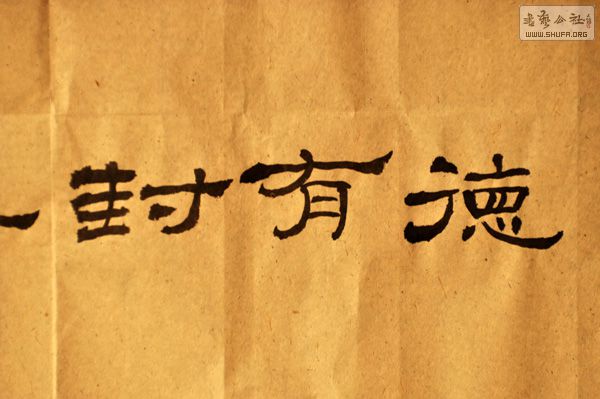 德有封
書藝公社
WWW.SHUFA.ORG